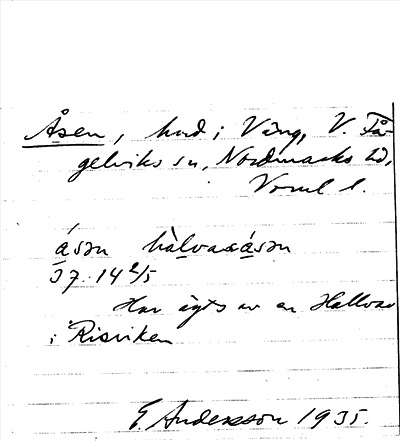 Åsen, hmd i Väng, V. Få-
gelviks sn, Nordmarks hd,
Vrml l.
åsən hàlvaṣåsən
37. 14 2/5
Har ägts av en Hallvar
i Risviken
E Andersson 1935.